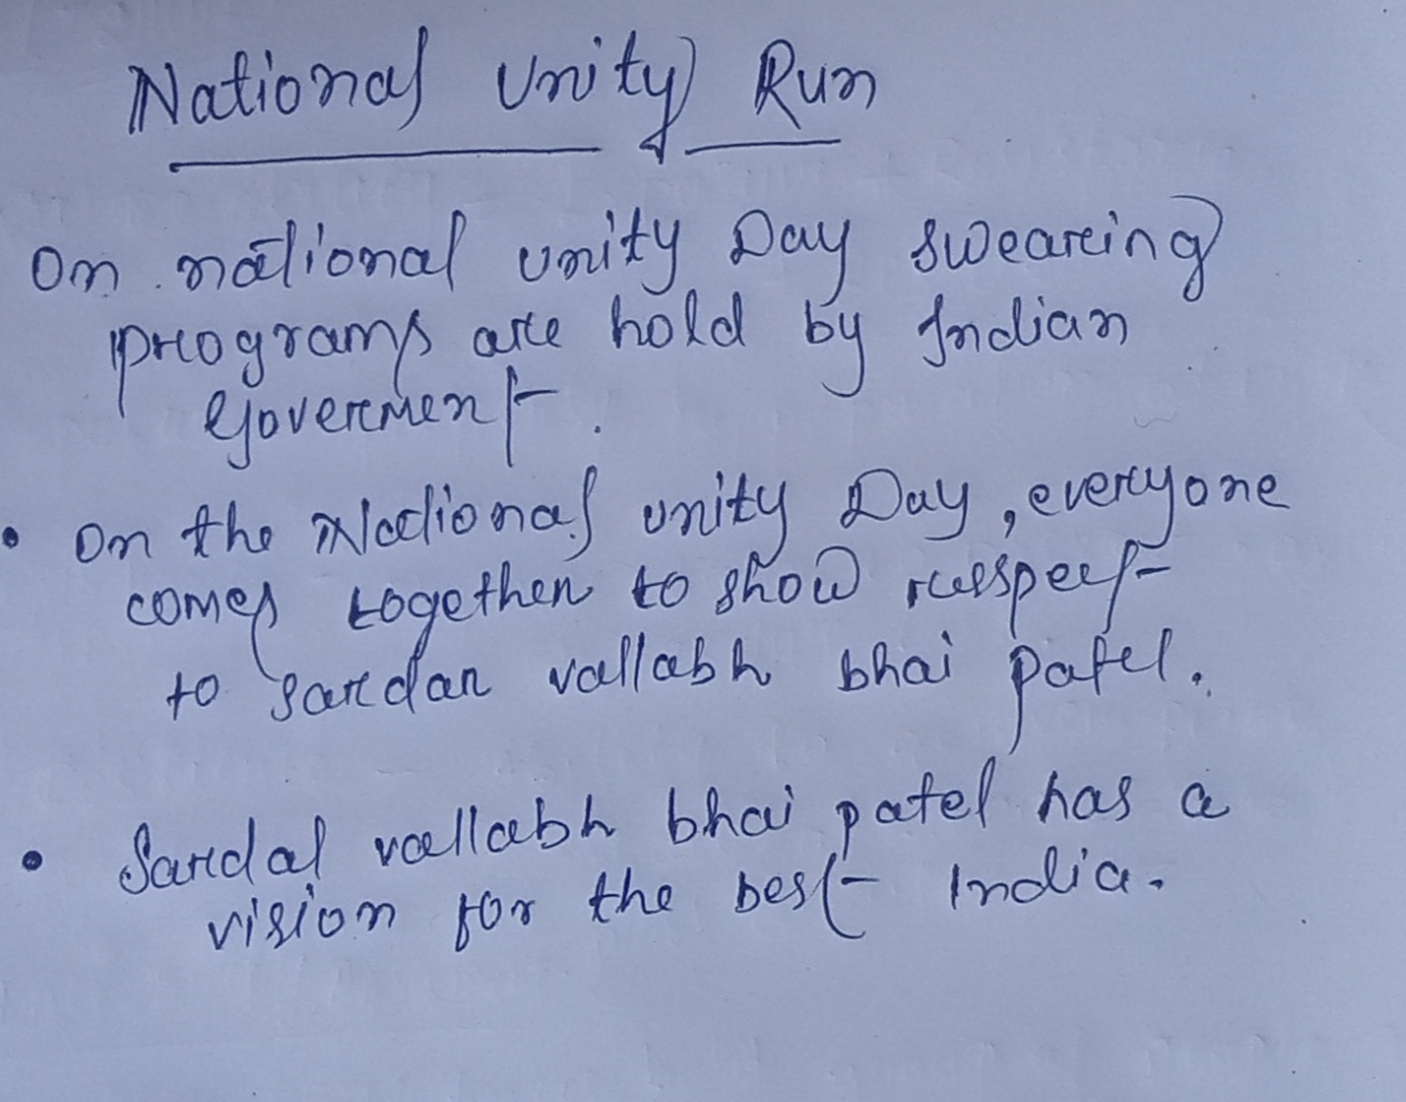 National Unity Run
On national unity Day swearing
programs are hold by Indian
Goverment.
• On the National unity Day, everyone
comes together to show respect
to Sardar vallabh bhai patel.
• Sardal vallabh bhai patel has a
vision for the best India.